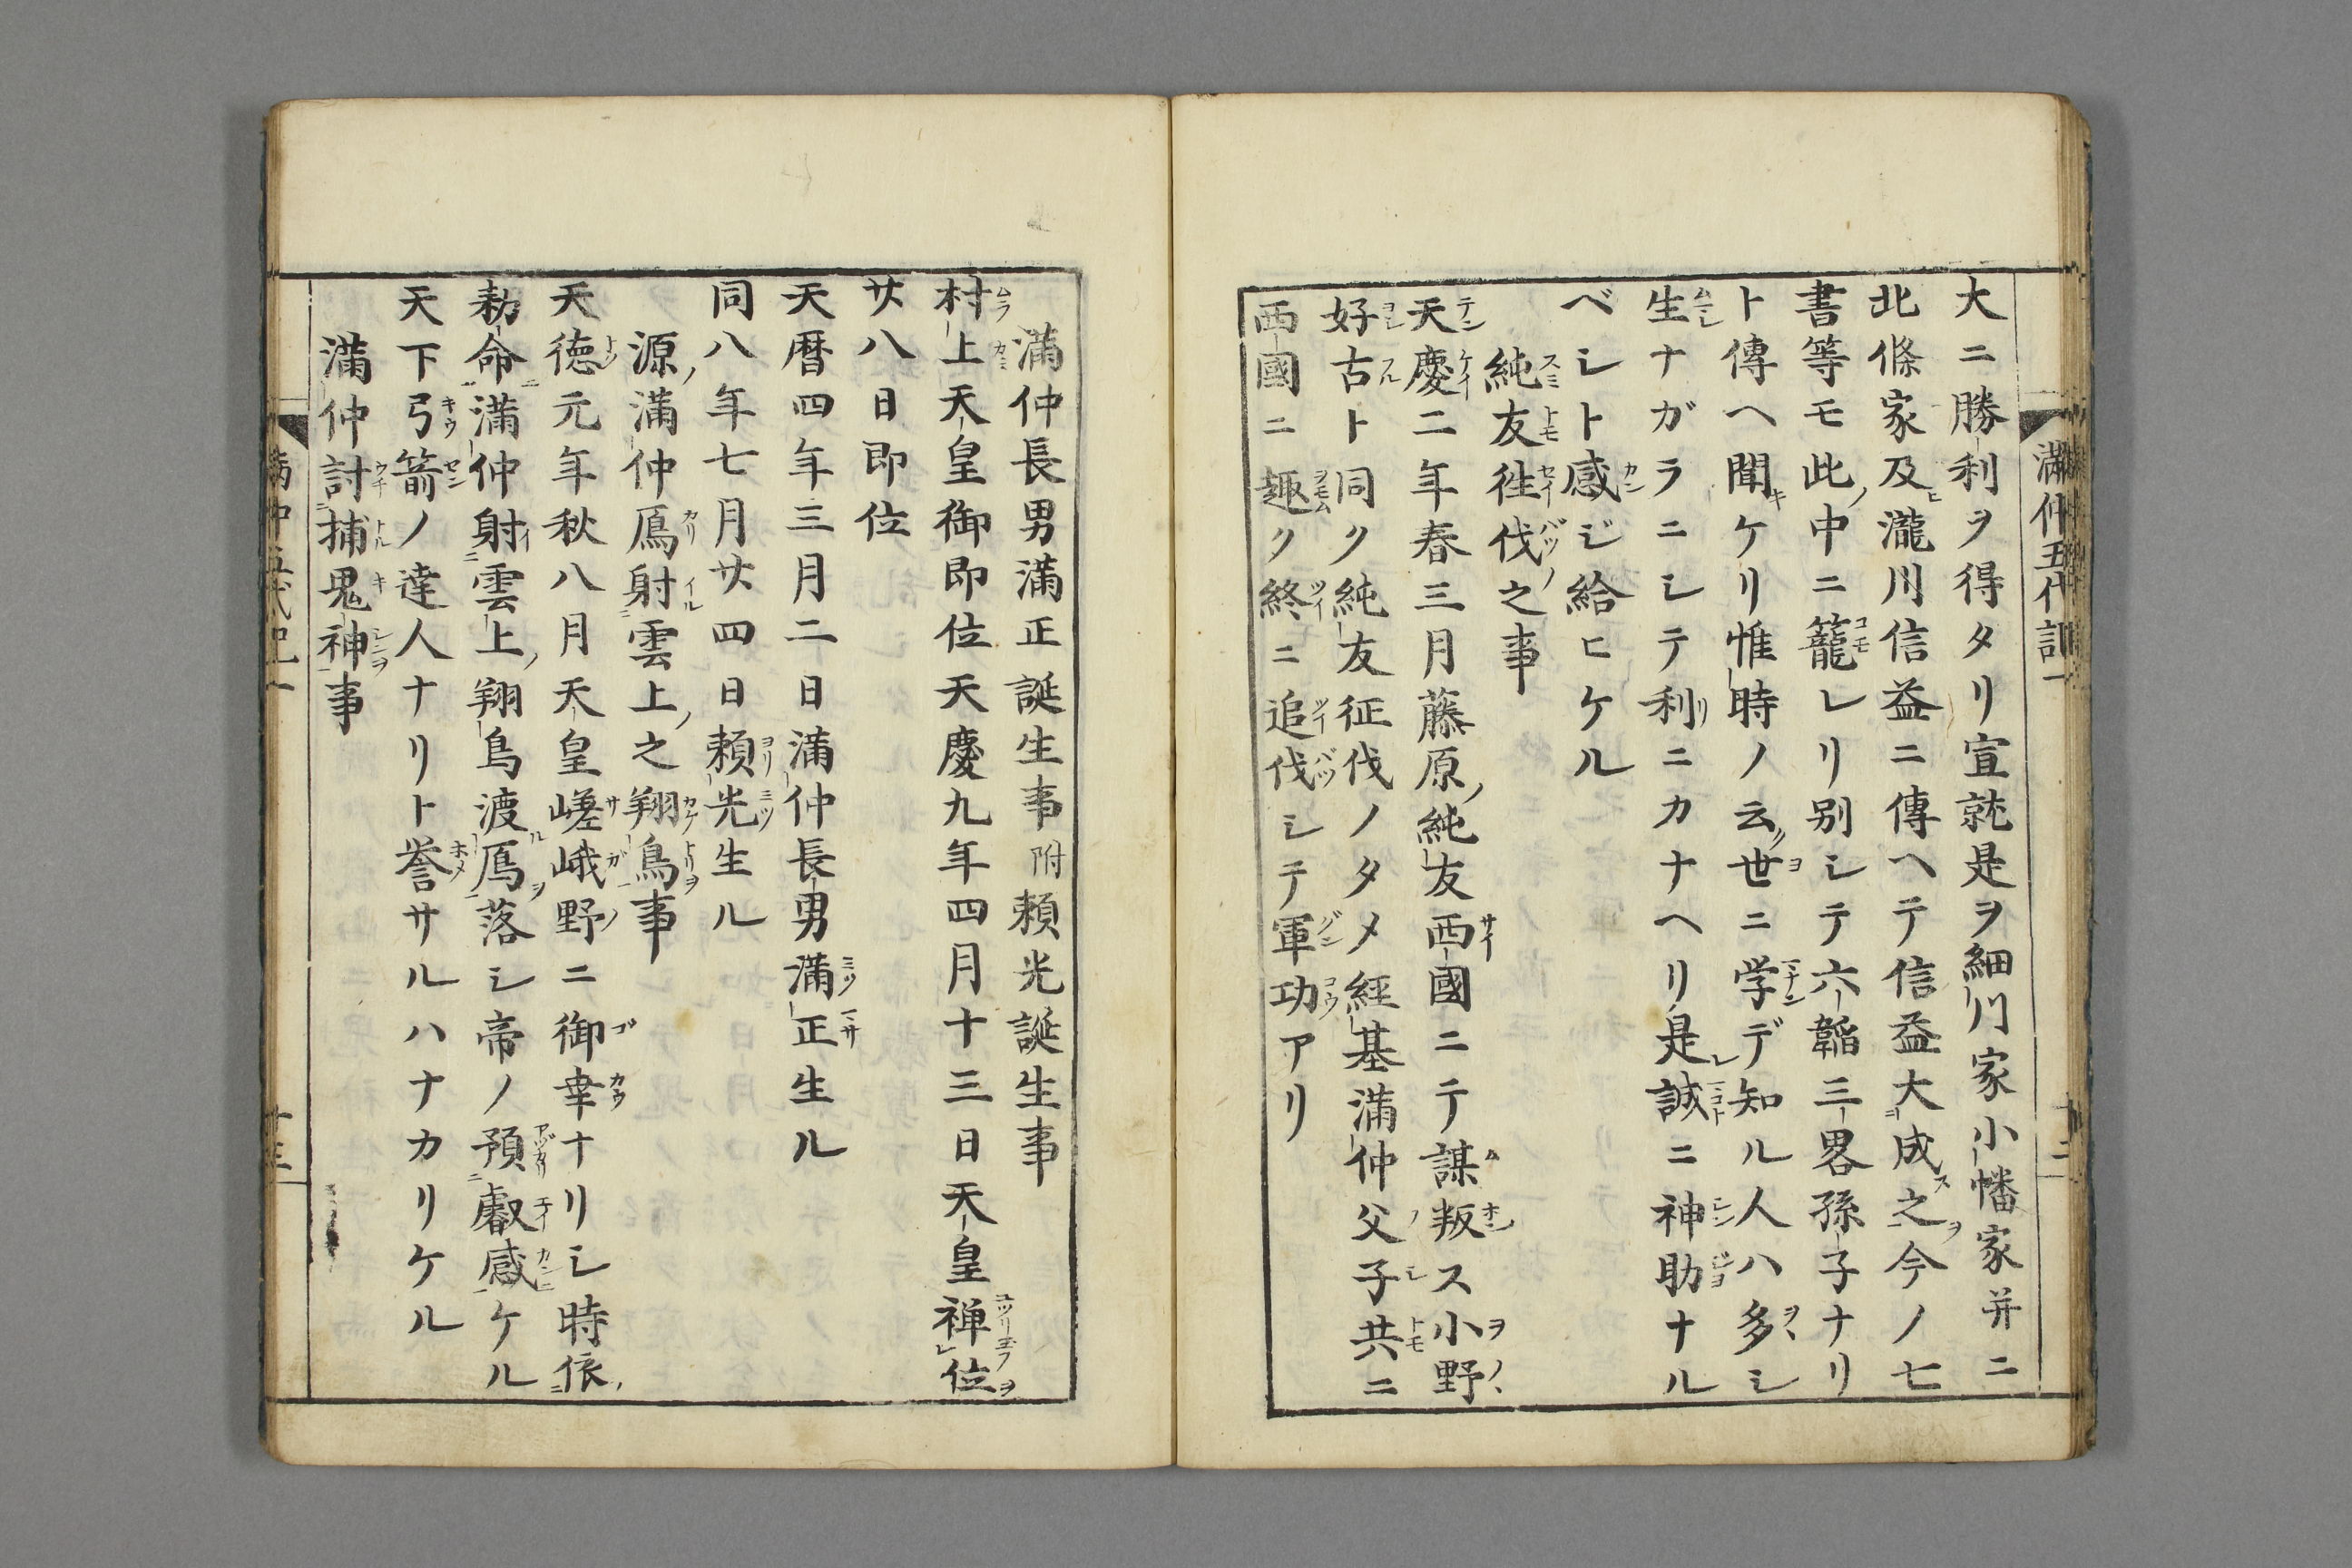 満仲五代記一
大ニ勝利ヲ得タリ宣就是ヲ細川家小幡家并ニ
北條家及瀧川信益ニ傳ヘテ信益大成之今ノ七
書等モ此中ニ籠レリ別シテ六韜三畧孫子ナリ
ト傳ヘ聞ケリ惟時ノ云世ニ学デ知ル人ハ多シ
生ナガラニシテ利ニカナヘリ是誠ニ神助ナル
ベシト感ジ給ヒケル
純友徃伐之事
天慶二年春三月藤原純友西國ニテ謀叛ス小野
好古ト同ク純友征伐ノタメ經基満仲父子共ニ
西國ニ趣ク終ニ追伐シテ軍功アリ
満仲長男満正誕生事附頼光誕生事
村上天皇御即位天慶九年四月十三日天皇禅位
廿八日即位
天暦四年三月二日満仲長男満正生ル
同八年七月廿四日頼光生ル
源満仲鴈射雲上之翔鳥事
天徳元年秋八月天皇嵯峨野ニ御幸ナリシ時依
勅命満仲射雲上翔鳥渡鴈落シ帝ノ預叡感ケル
天下弓箭ノ達人ナリト誉サルハナカリケル
満仲討捕鬼神事